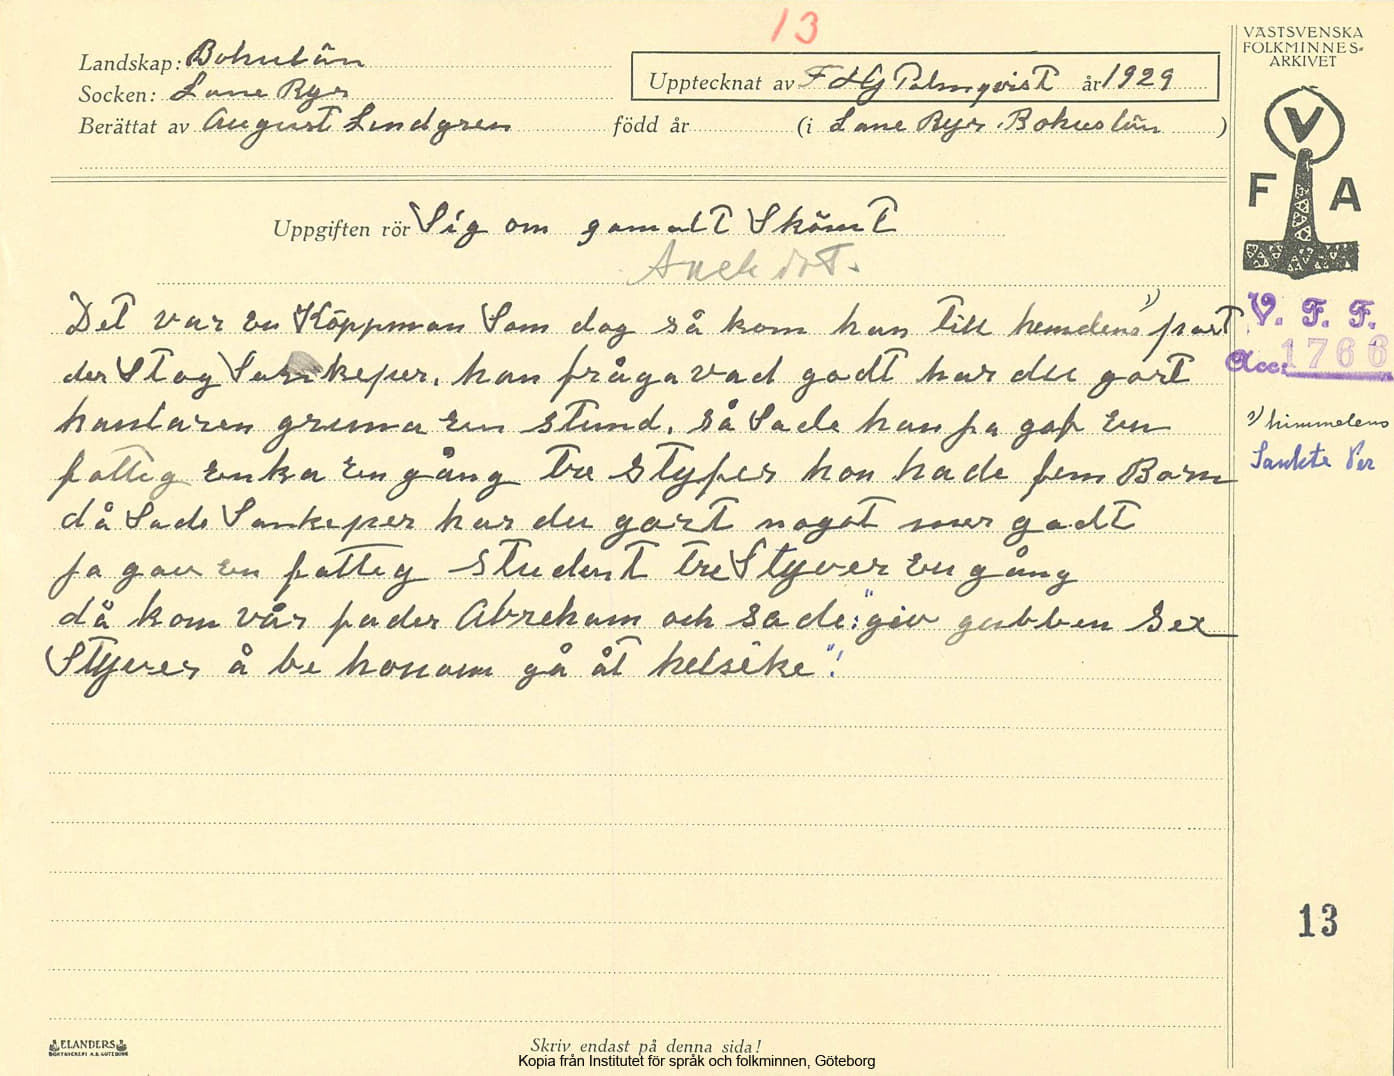 13
VÄSTSVENSKA
FOLKMINNES-
ARKIVET
Landskap: Bohuslän
Socken: Lane Ryr
Upptecknat av F Hg Palmqvist år 1929
Berättat av August Lindgren född år (i Lane Ryr. Bohuslän )
V
F A
Uppgiften rör Sig om gamalt Skämt
Anekdot.
Det var en Köppman Som dog så kom han till hemdens 1) port
V. F. F.
Acc. 1766
der Stog Sankeper. han fråga vad godt har du gort
hanlaren gruna en stund. så Sade han ja gaf en
1) himmelens
Sankte Per
fattig enka en gång tre styfer hon hade fem Barn
då Sade Sankeper har du gort nogot mer godt
ja gav en fattig student tre Styver en gång
då kom vår fader Abreham och sade: "giv gubben sex
Styver å be honom gå åt helsike"!
13
ELANDERS
BOKTRYCKERI A.B. GÖTEBORG
Skriv endast på denna sida!
Kopia från Institutet för språk och folkminnen, Göteborg